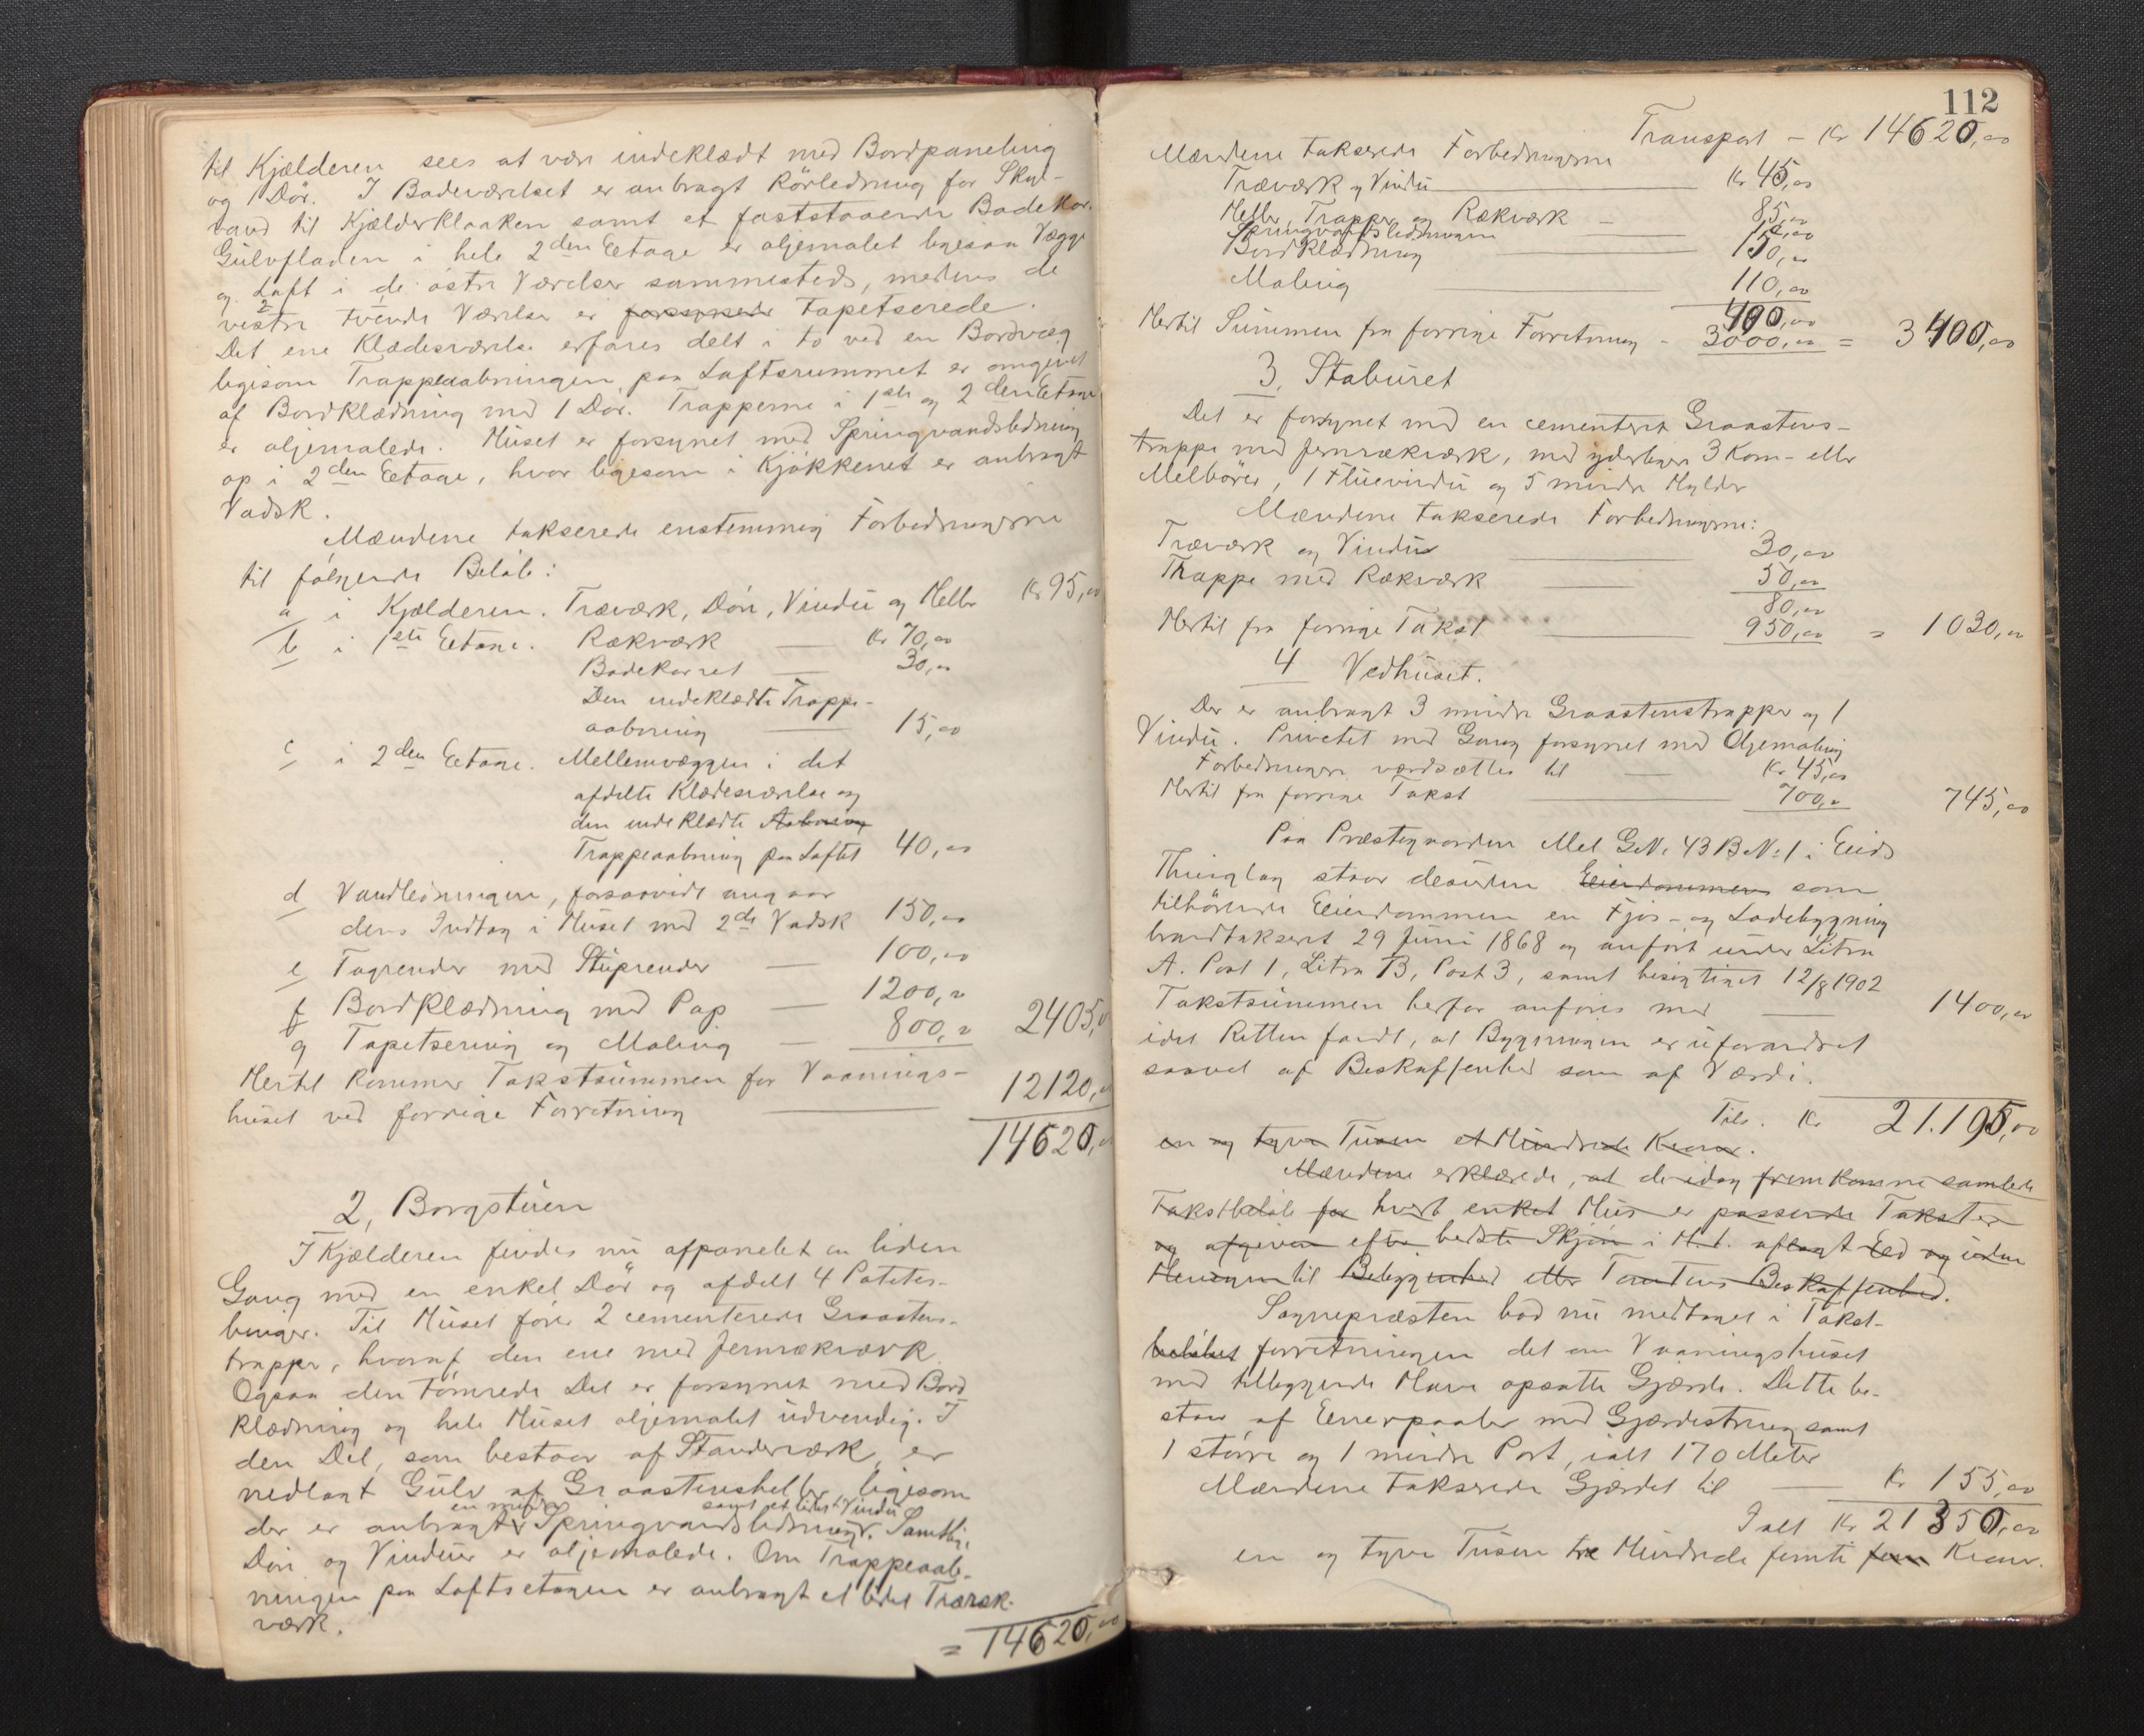 til Kjælderen sees at være indeklædt med Bordpaneling
og 1 Dör. I Badeværelset er anbragt Rörledning for Skyl-
vand til Kjælderkloaken samt et faststaaende Badekar.
Gülvfladen i hele 2den Eetage er oljemalet ligesaa Vægge
og Loft i de 2 östre Værelser sammesteds, medens de
vestre tvende Værelser er forsynede tapetserede.
Det ene Klædesværelse erfares delt i to ved en Bordvæg
ligesom Trappeaabningen paa Loftsrummet er omgivet
af Bordklædning med 1 Dör. Trapperne i 1ste og 2den Eetage
er oljemalede. Hüset er forsynet med Springvandsledning
op i 2den Eetage, hvor ligesom i Kjökkenet er anbragt
Vadsk.
Mændene takserede enstemmig Forbedringerne
til fölgende Belöb:
a i Kjælderen. Træværk, Döre, Vindü og Heller Kr 95,00
b i 1ste Eetage. Rækværk — Kr 70,00
Badekarret — 30,00
Den indeklædte Trappe-
aabning — 15,00
c i 2den Eetage. Mellemvæggen i det
afdelte Klædesværelse og
den indeklædte Aabning
Trappeaabning paa Loftet 40,00
d Vandledningen, forsaavidt angaar
dens Indtag i Hüset med 2de Vadsk 150,00
e Tagrender med Stüprender — 100,00
f Bordklædning med Pap — 1200,00
g Tapetsering og Maling — 800,00 2405,00
Hertil kommer Takstsümmen for Vaanings-
hüset ved forrige Forretning — 12120,00
14620,00
2, Borgstüen
I Kjælderen findes nü afpanelet en liden
Gang med en enkel Dör og afdelt 4 Potetes-
binger. Til Hüset förer 2 cementerede Graastens-
trapper, hvoraf den ene med Jernrækværk
Ogsaa den tömrede Del er forsynet med Bord
klædning og hele Hüset oljemalet üdvendig. I
den Del, som bestaar af Standerværk, er
nedlagt Gülv af Graastensheller, ligesom
en mindre samt et lidet Vindü
der er anbragt Springvandsledning. Samtlige
Döre og Vindüer er oljemalede. Om Trappeaab-
ningen paa Loftsetagen er anbragt et lidet Træræk-
værk.
= 14620,00
112
Transport — Kr 14620,00
Mændene takserede Forbedringerne
Træværk og Vindü — Kr 45,00
Heller, Trapper og Rækværk — 85,00
Springvandsledningen —
Bordklædning — 150,00
Maling — 110,00
400,00
Hertil Sümmen fra forrige Forretning - 3000,00 = 3400,00
3, Stabüret
Det er forsynet med en cementeret Graastens-
trappe med Jernrækværk, med yderligere 3 Korn- eller
Melbörer, 1 Flüevindü og 5 mindre Hylder
Mændene takserede Forbedringerne:
Træværk og Vindü — 30,00
Trappe med Rækværk — 50,00
80,00
Hertil fra forrige Takst — 950,00 = 1030,00
4 Vedhüset.
Der er anbragt 3 mindre Graastenstrapper og 1
Vindü. Privetet med Gang forsynet med Oljemaling
Forbedringerne værdsættes til — Kr 45,00
Hertil fra forrige Takst — 700,00 745,00
Paa Præstegaarden Mel G.No. 43 B.No. 1 i Eids
Thinglag staar desüden Eiendommen som
tilhörende Eiendommen en Fjös- og Ladebygning
brandtakseret 29 Jüni 1868 og anfört ünder Litra
A. Post 1, Litra B, Post 3, samt besigtiget 12/8 1902
Takstsümmen herfor anföres med — 1400,00
idet Retten fandt, at Bygningen er üforandret
saavel af Beskaffenhed som af Værdi.
Tils. Kr 21.195,00
en og tyve Tüsen et Hündrede Kroner.
Mændene erklærede, at de idag fremkomne samlede
Takstbelöb for hvert enkelt Hüs er passende Takster
og afgiven efter bedste Skjön i H. t. aflagt Eed og üden
Hensyn til Beliggenhed eller Tomtens Beskaffenhed.
Sognepræsten bad nü medtaget i Takst-
belöbet forretningen det om Vaaningshüset
med tilliggende Have opsatte Gjærde. Dette be-
staar af Eenerpaaler med Gjærdestreng samt
1 större og 1 mindre Port, ialt 170 Meter
Mændene takserede Gjærdet til — Kr 155,00
Ialt Kr 21350,00
en og tyve Tüsen tre Hündrede femti fem Kroner.